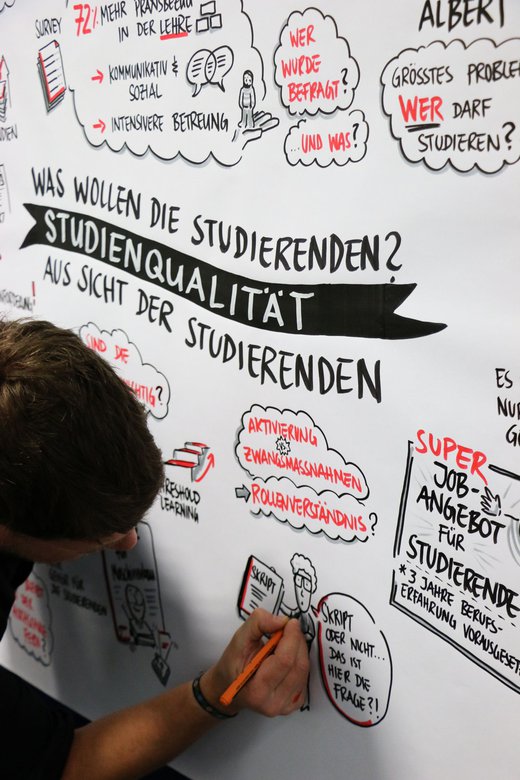 SURVEY
72% MEHR PRAXISBEZUG
IN DER LEHRE
→ KOMMUNIKATIV &
SOZIAL
→ INTENSIVERE BETREUUNG
WER
WURDE
BEFRAGT?
...UND WAS?
ALBERT
GRÖSSTES PROBLEM
WER DARF
STUDIEREN?
WAS WOLLEN DIE STUDIERENDEN?
STUDIENQUALITÄT
AUS SICHT DER STUDIERENDEN
SIND DIE
AKTIVIERUNG
ZWANGSMASSNAHMEN
ROLLENVERSTÄNDNIS?
LEARNING
SKRIPT
SKRIPT
ODER NICHT...
DAS IST
HIER DIE
FRAGE?!
ES
SUPER
JOB-
ANGEBOT
FÜR
STUDIERENDE
*3 JAHRE BERUFS-
ERFAHRUNG VORAUSGESET